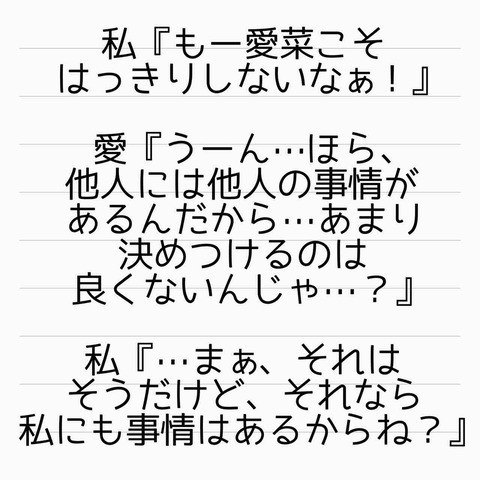 私『もー愛菜こそ
はっきりしないなぁ！』
愛『うーん…ほら、
他人には他人の事情が
あるんだから…あまり
決めつけるのは
良くないんじゃ…？』
私『…まぁ、それは
そうだけど、それなら
私にも事情はあるからね？』